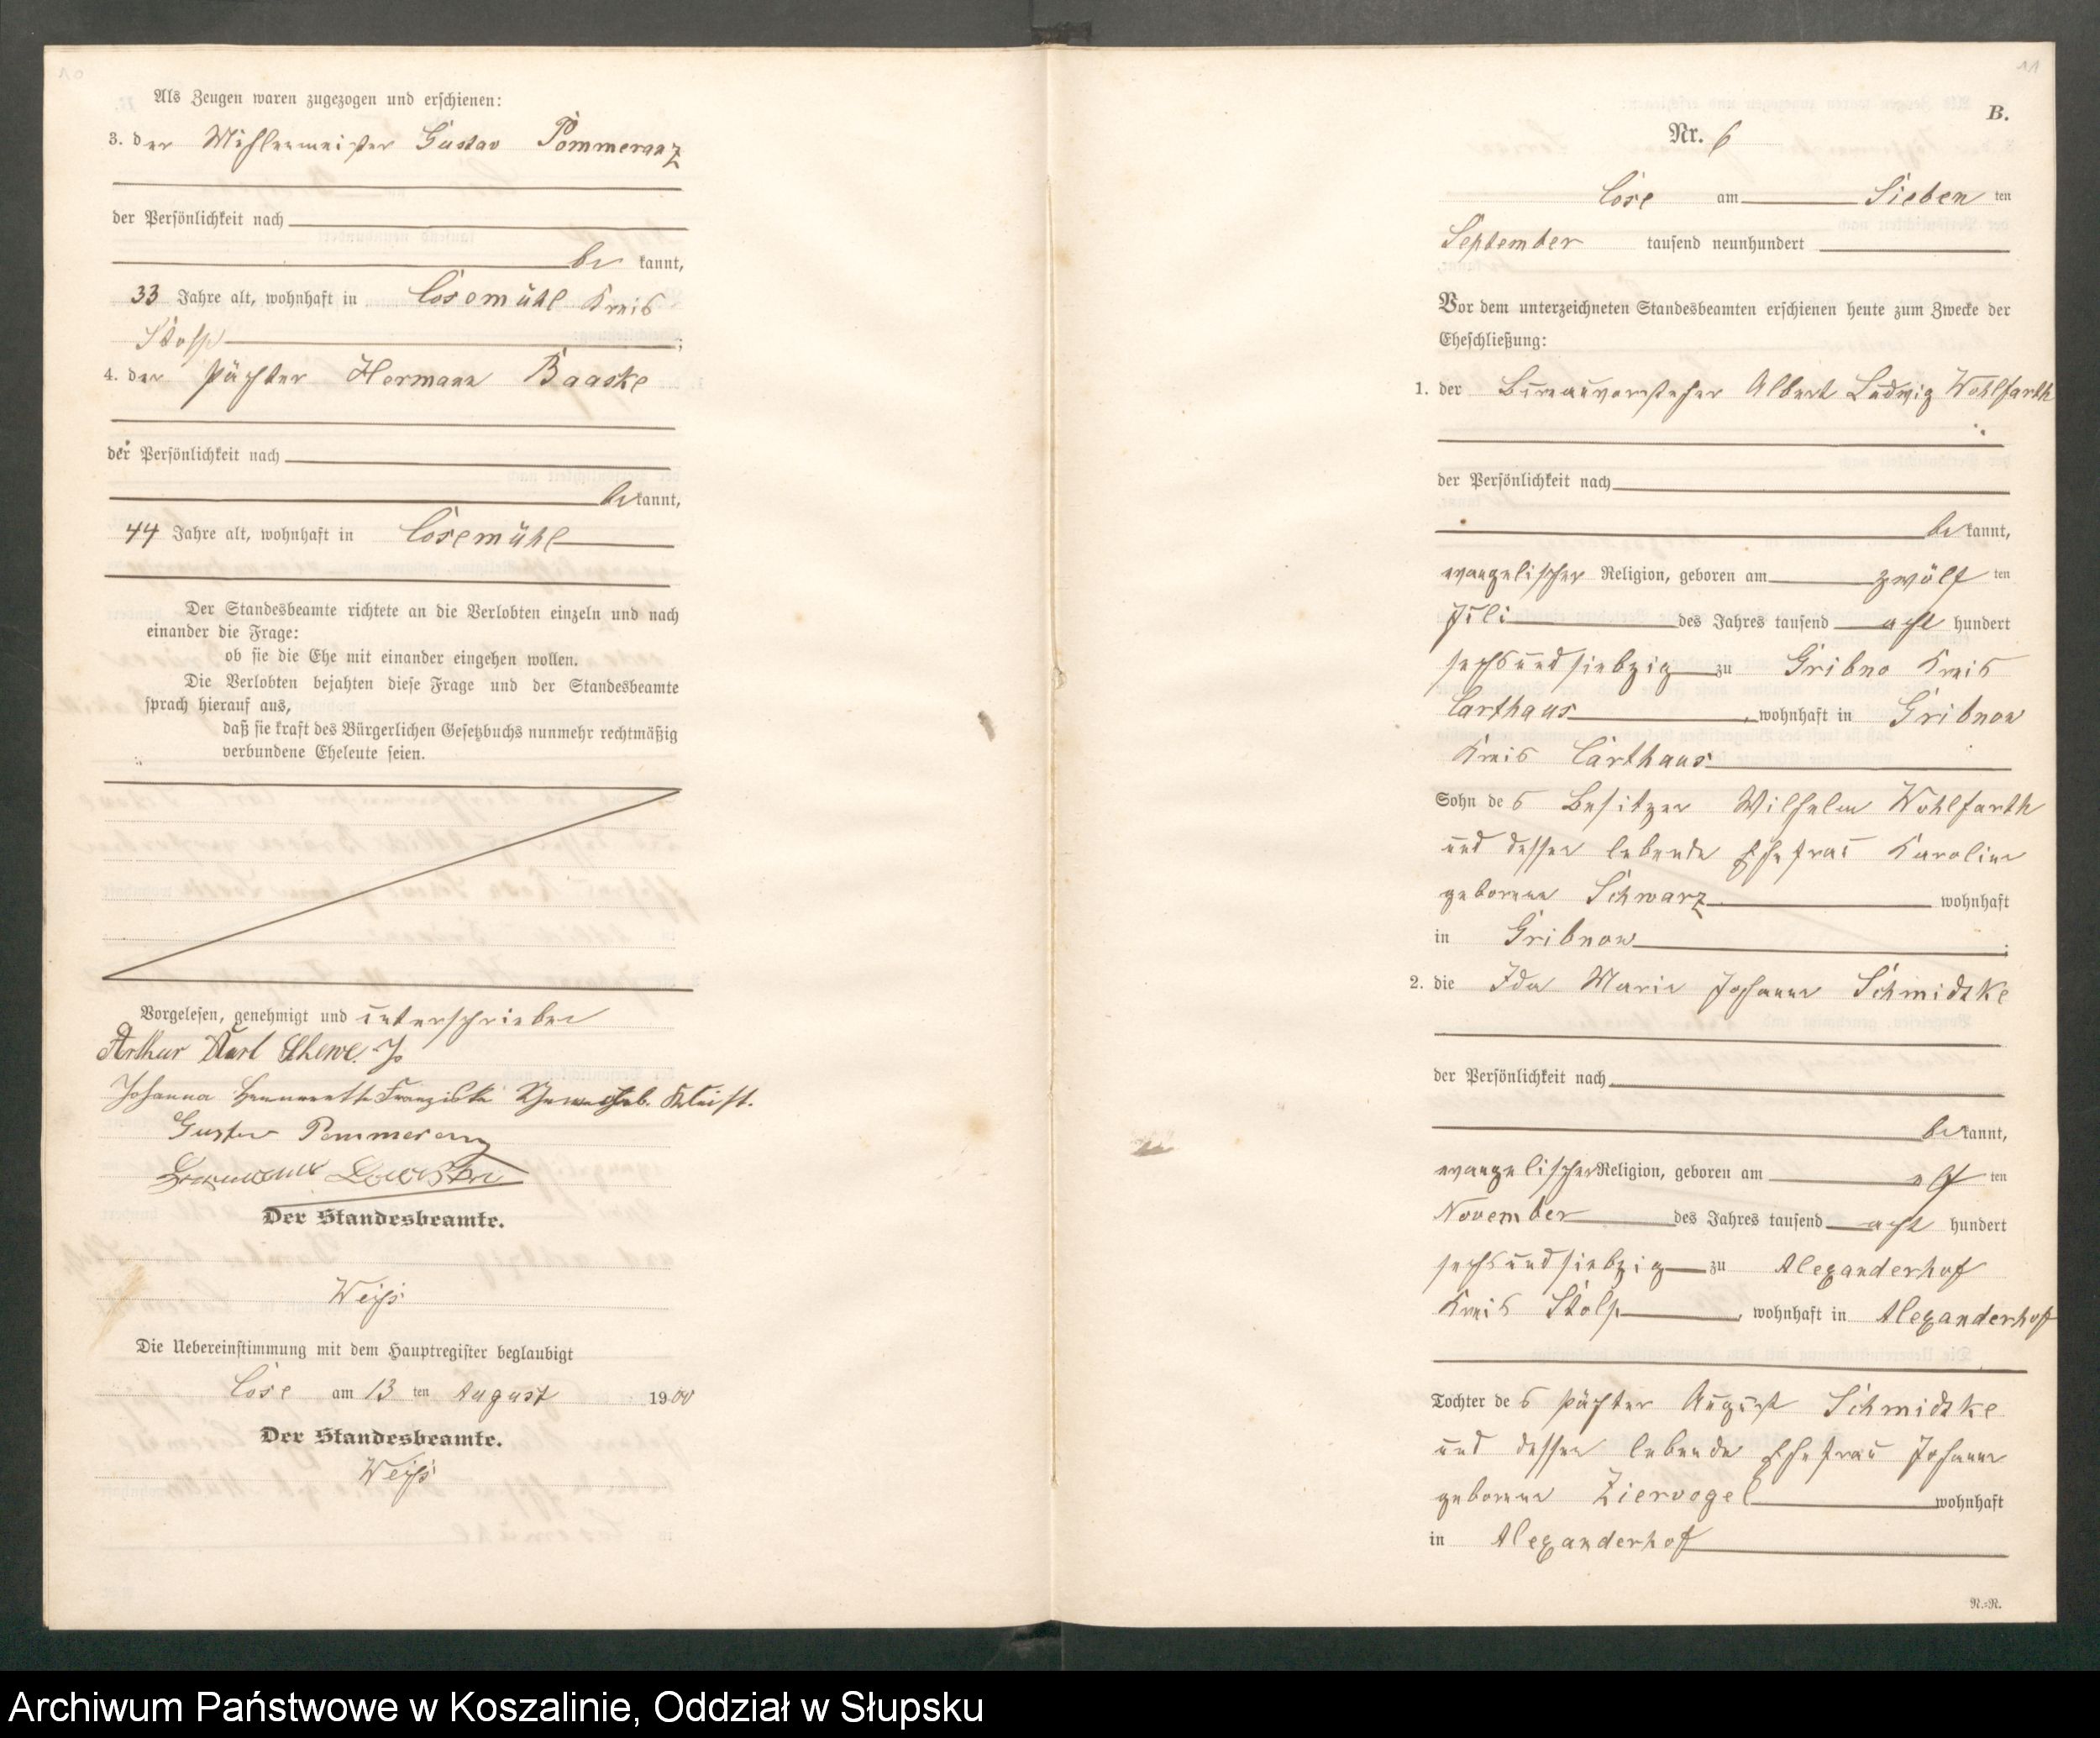 10
Als Zeugen waren zugezogen und erschienen:
3. der Mühlenmeister Gustav Pommeranz
der Persönlichkeit nach
be kannt,
33 Jahre alt, wohnhaft in Cosemühl Kreis
Stolp ;
4. der Pächter Hermann Baaske
der Persönlichkeit nach
be kannt,
44 Jahre alt, wohnhaft in Cosemühl
Der Standesbeamte richtete an die Verlobten einzeln und nach
einander die Frage:
ob sie die Ehe mit einander eingehen wollen.
Die Verlobten bejahten diese Frage und der Standesbeamte
sprach hierauf aus,
daß sie kraft des Bürgerlichen Gesetzbuchs nunmehr rechtmäßig
verbundene Eheleute seien.
Vorgelesen, genehmigt und unterschrieben
Arthur Karl
Johanna Franziska geb. Kleist.
Gustav Pommeranz
Der Standesbeamte.
Weiß
Die Uebereinstimmung mit dem Hauptregister beglaubigt
Cose am 13 ten August 1900
Der Standesbeamte.
Weiß
11
B.
Nr. 6
Cose am Sieben ten
September tausend neunhundert
Vor dem unterzeichneten Standesbeamten erschienen heute zum Zwecke der
Eheschließung:
1. der Bureauvorsteher Albert Ludwig Wohlfarth
der Persönlichkeit nach
be kannt,
evangelischer Religion, geboren am zwölf ten
Juli des Jahres tausend acht hundert
sechsundsiebzig zu Gribno Kreis
Carthaus, wohnhaft in Gribnow
Kreis Carthaus
Sohn des Besitzer Wilhelm Wohlfarth
und dessen lebende Ehefrau Karoline
geborene Schwarz wohnhaft
in Gribnow ;
2. die Ida Marie Johanne Schmidtke
der Persönlichkeit nach
be kannt,
evangelischer Religion, geboren am elf ten
November des Jahres tausend acht hundert
sechsundsiebzig zu Alexanderhof
Kreis Stolp, wohnhaft in Alexanderhof
Tochter des Pächter August Schmidtke
und dessen lebende Ehefrau Johanne
geborene Ziervogel wohnhaft
in Alexanderhof
R.=R.
Archiwum Państwowe w Koszalinie, Oddział w Słupsku